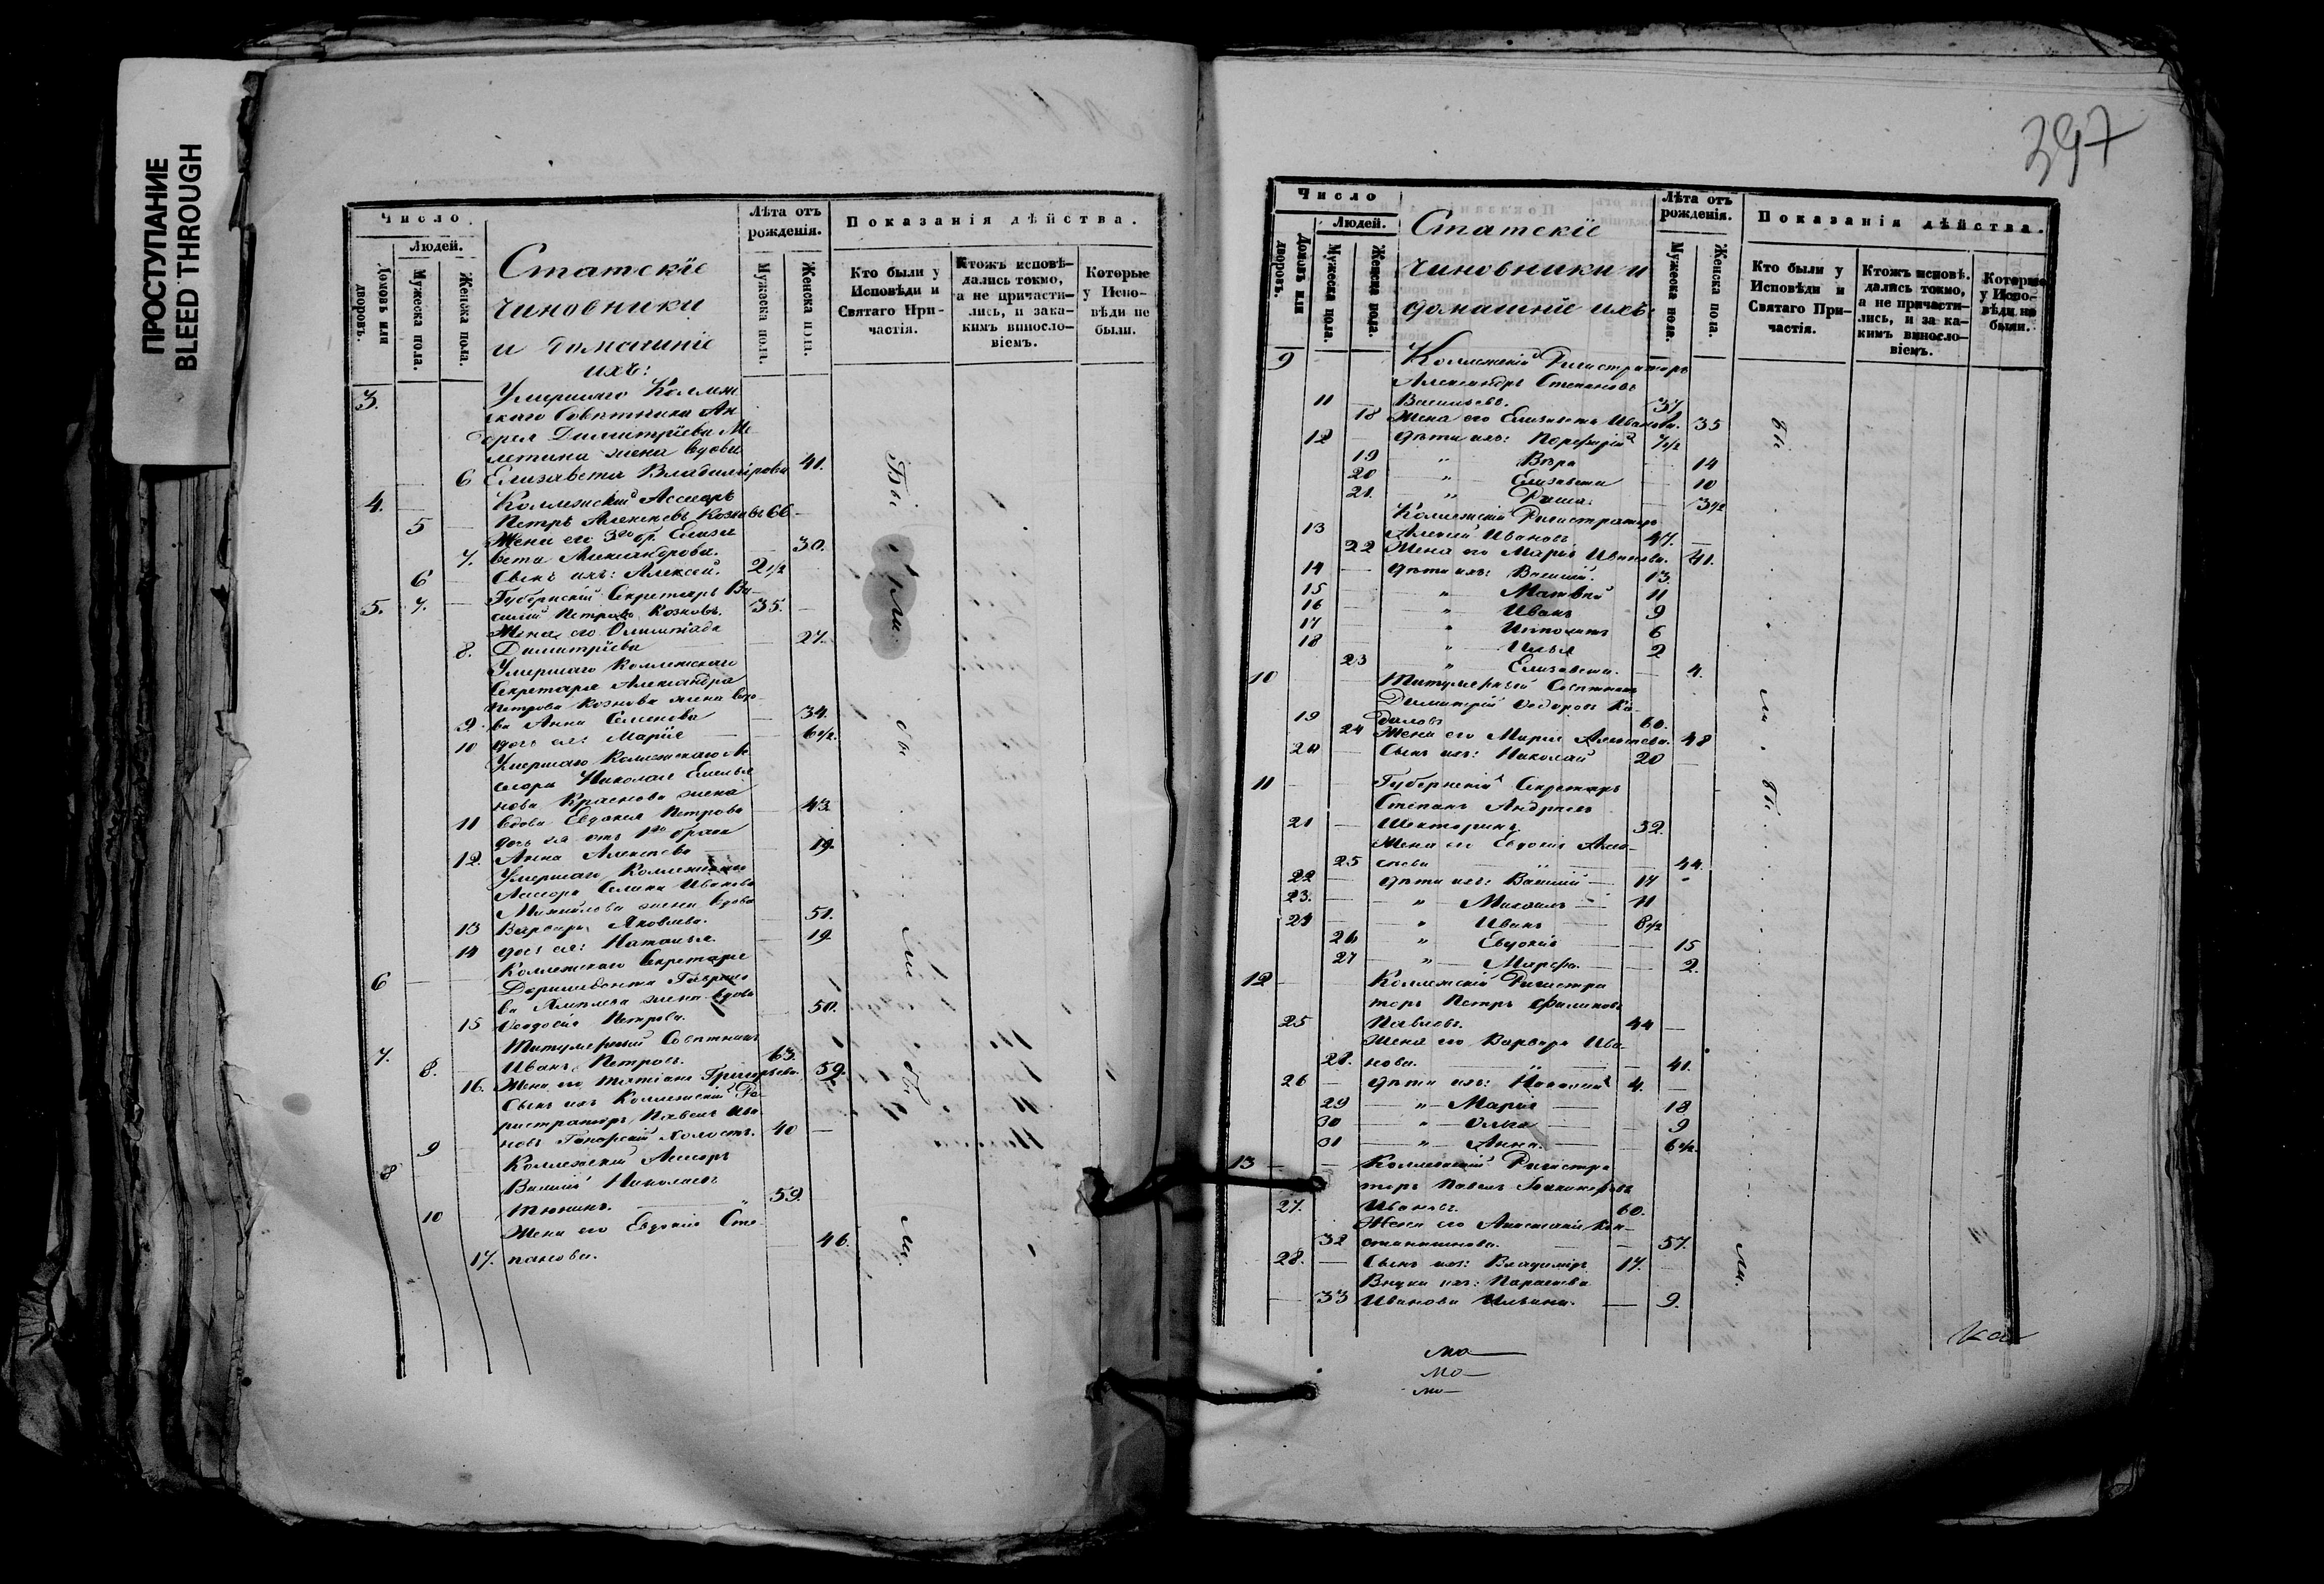 ПРОСТУПАНИЕ
BLEED THROUGH
Число.
Людей.
Домовъ или дворовъ.
Мужеска пола.
Женска пола.
Статскіе
чиновники
и домашніе
ихъ:
Лѣта отъ рожденія.
Мужеска пола.
Женска пола.
Показанія дѣйства.
Кто были у Исповѣди и Святаго Причастія.
Ктожъ исповѣдались токмо, а не причастились, и за какимъ винословіемъ.
Которые у Исповѣди не были.
3. Умершаго Коллеж
скаго Совѣтника Ан
дрея Димитріева
жена вдова
6 Елизавета Владимірова 41.
4. Коллежскій Ассесоръ
5 Петръ Алексѣевъ Козновъ 66
Жена его 3го бр. Елиза
7. вета Александрова. 30.
6 Сынъ ихъ: Алексѣй. 2 1/2
5. 7. Губернскій Секретарь Ва
силій Петровъ Козновъ. 35.
Жена его Олимпіада
8. Димитріева 27.
Умершаго Коллежскаго
Секретаря Александра
Петрова Кознова жена вдо
9. ва Анна Семенова 34.
10 дочь ея: Марія 6 1/2.
Умершаго Коллежскаго Ас
сесора Николая Емелья
нова Краснова жена
11 вдова Евдокія Петрова 43.
дочь ея отъ 1го брака
12. Анна Алексѣева 19.
Умершаго Коллежскаго
Ассесора Ивanова
Михайлова жена вдова
13 Варвара Яковлева. 51.
14 дочь ея: Наталья. 19.
6 Коллежскаго Секретаря
Дормидонта Гаврило
ва жена вдова
15 Ѳеодосія Петрова. 50.
7. Титулярный Совѣтникъ
8. Иванъ Петровъ. 63.
16. Жена его Татіана Григорьева 59.
Сынъ ихъ Коллежскій Ре
гистраторъ Павелъ Ива
9 новъ холостъ. 40
8 Коллежскій Ассесоръ
Василій Николаевъ
10 Тюнинъ. 59.
Жена его Евдокія Сте
17. панова. 46.
Бы
ли.
бы
ли
бы
ли.
397
Число
Людей.
Домовъ или дворовъ.
Мужеска пола.
Женска пола.
Статскіе
чиновники и
домашніе ихъ:
Лѣта отъ рожденія.
Мужеска пола.
Женска пола.
Показанія дѣйства.
Кто были у Исповѣди и Святаго Причастія.
Ктожъ исповѣдались токмо, а не причастились, и за какимъ винословіемъ.
Которые у Исповѣди не были.
9 Коллежскій Регистраторъ
Александръ Степановъ
11 Васильевъ. 37
18 Жена его Елизавета Иванова. 35
12 дѣти ихъ: Порфирій 7 1/2
19 " Вѣра 14
20 " Елизавета 10
21. " Раиса. 3 1/2
Коллежскій Регистраторъ
13 Алексѣй Ивановъ 47.
22 Жена его Марія Иванова. 41.
14 дѣти ихъ: Василій. 13.
15 " Матвѣй 11
16 " Иванъ 9
17 " Ипполитъ 6
18 " Илья 2
23 " Елизавета. 4.
10 Титулярный Совѣтникъ
Димитрій Ѳедоровъ
19 60.
24 Жена его Марія Алексѣева. 48
20 Сынъ ихъ: Николай 20
11 Губернскій Секретарь
Степанъ Андреевъ
21 Шекторинъ. 32.
Жена его Евдокія Алек
25 сѣева 44.
22 дѣти ихъ: Василій 17
23. " Михаилъ 11
24 " Иванъ 8 1/2
26 " Евдокія 15
27 " Марфа. 2.
12 Коллежскій Регистра
торъ Петръ Филиповъ
25 Павловъ. 44
Жена его Варвара Ива
28. нова. 41.
26 дѣти ихъ: Николай 4.
29 " Марія 18
30 " Ольга 9
31 " Анна. 6 1/2.
13 Коллежскій Регистра
торъ Павелъ
27. Ивановъ. 60.
Жена его Анастасія Кон
32 стантинова. 57.
28. Сынъ ихъ: Владиміръ 17.
Внука ихъ: Параскева
33 Иванова Ильина. 9.
бы
ли
бы
ли.